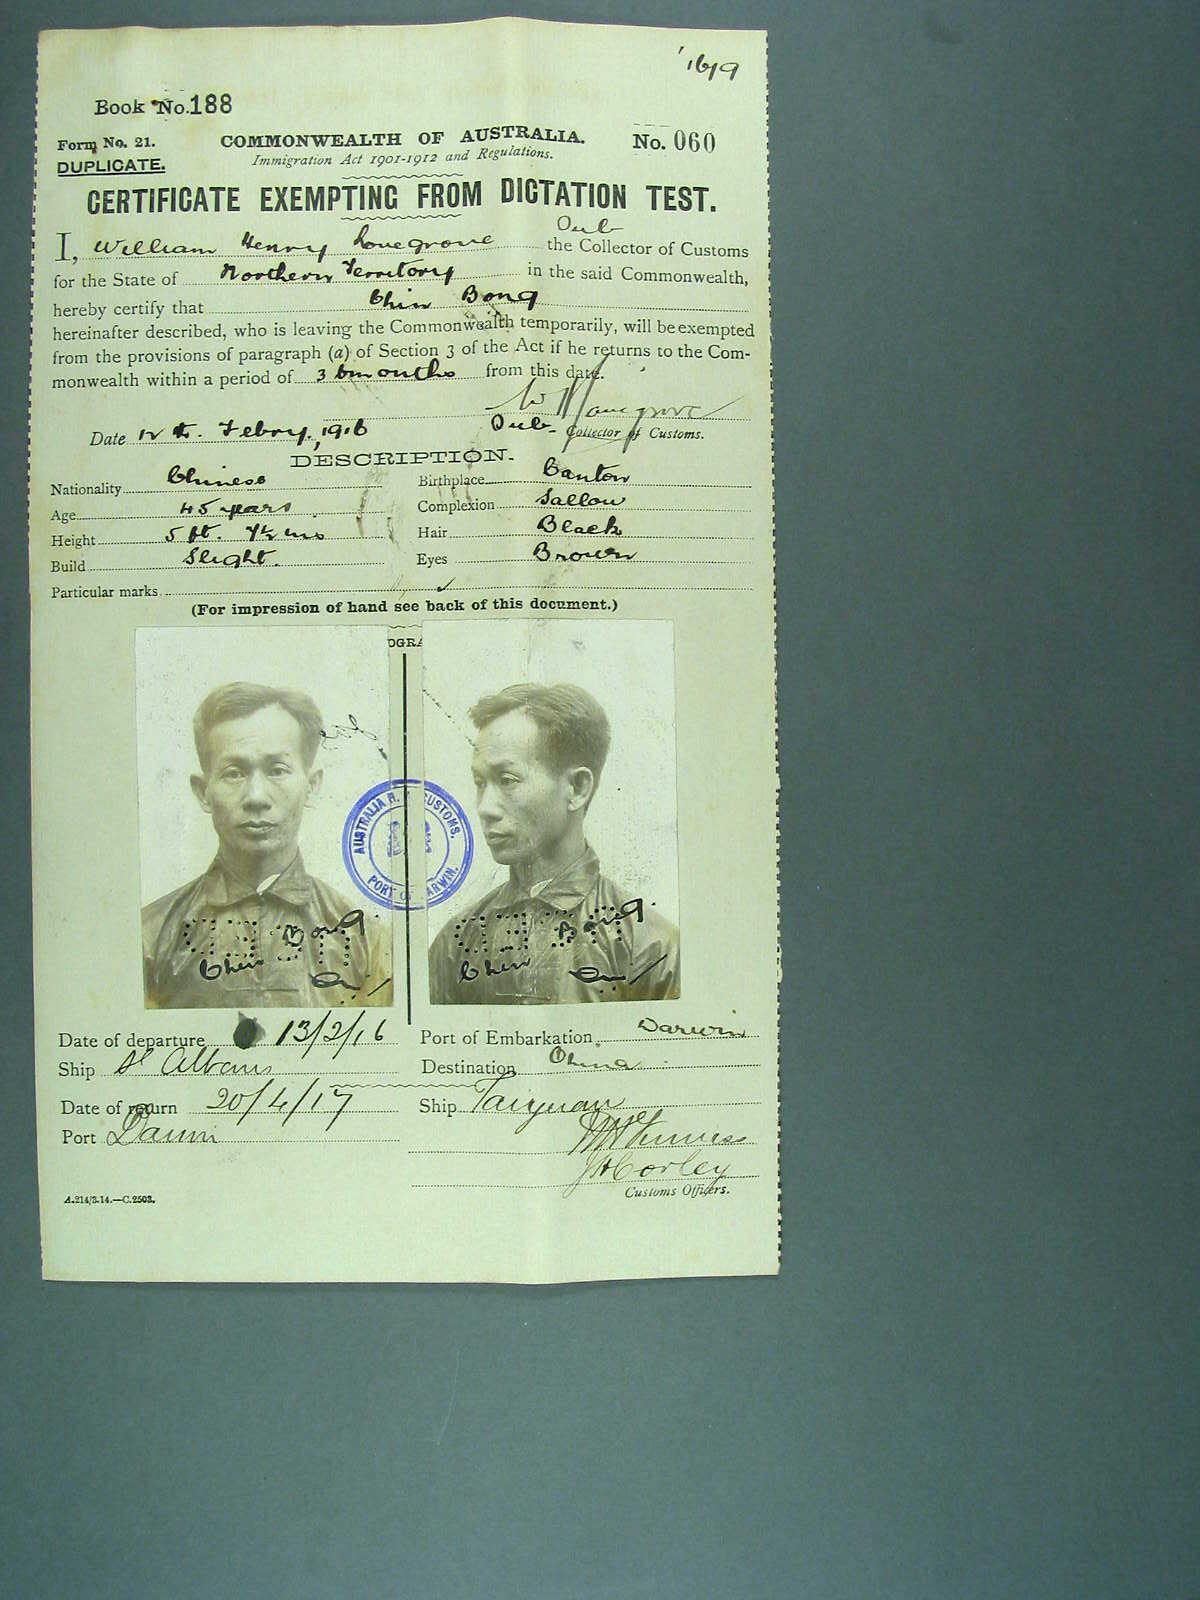 Book No. 188
Form No. 21.
DUPLICATE.
COMMONWEALTH OF AUSTRALIA.
Immigration Act 1901-1912 and Regulations.
No. 060
CERTIFICATE EXEMPTING FROM DICTATION TEST.
Sub
I, William Henry Lovegrove the Collector of Customs
for the State of Northern Territory in the said Commonwealth,
hereby certify that Chin Bong
hereinafter described, who is leaving the Commonwealth temporarily, will be exempted
from the provisions of paragraph (a) of Section 3 of the Act if he returns to the Com-
monwealth within a period of 36 months from this date.
W H Lovegrove
Date 12 th. Febry., 1916
Sub- Collector of Customs.
DESCRIPTION.
Nationality Chinese
Birthplace Canton
Age 45 years
Complexion Sallow
Height 5 ft. 7½ ins
Hair Black
Build Slight.
Eyes Brown
Particular marks
(For impression of hand see back of this document.)
OGRA
AUSTRALIA H. CUSTOMS.
PORT OF DARWIN.
Chin Bong
Chin Bong
Date of departure 13/2/16
Port of Embarkation Darwin
Ship St Albans
Destination China
Date of return 20/4/17
Ship Taiyuan
Port Darwin
Customs Officers.
A.214/3.14.—C.2503.